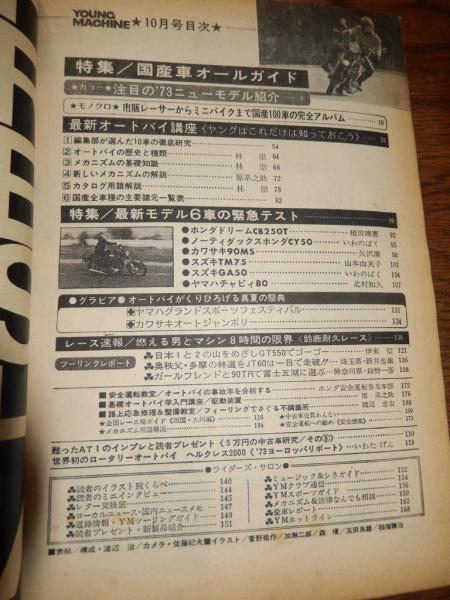 YOUNG
MACHINE ★10月号目次★
特集／国産車オールガイド
★カラー★注目の'73ニューモデル紹介
★モノクロ★市販レーサーからミニバイクまで国産100車の完全アルバム 19
最新オートバイ講座《ヤングはこれだけは知っておこう》 53
1 編集部が選んだ10車の徹底研究 54
2 オートバイの歴史と種類 林 崇 64
3 メカニズムの基礎知識 林 崇 68
4 新しいメカニズムの解説 原系之助 72
5 カタログ用語解説 林 崇 78
6 国産全車種の主要諸元一覧表 82
特集／最新モデル6車の緊急テスト
●ホンダドリームCB250T 植田靖憲 92
●ノーティダックスホンダCY50 いわのばく 95
●カワサキ90MS 矢沢潔 98
●スズキTM75 山本由美子 101
●スズキGA50 いわのばく 104
●ヤマハチャピィ80 北村知久 107
●グラビア●オートバイがくりひろげる真夏の祭典
ヤマハグランドスポーツフェスティバル 131
カワサキオートジャンボリー 134
レース速報／燃える男とマシン8時間の限界《鈴鹿耐久レース》
ツーリングレポート
日本1と2の山をめざしGT550でゴーゴー 伊東 信 121
奥秩父・多摩の林道をJT60は一日で走破!! 埼玉県・新井忠雄 124
ガールフレンドと90TRで富士五湖に遊ぶ 神奈川県・鈴野一彦 126
■安全運転教室／オートバイの事故率を分析する ホンダ安全運転普及本部 128
■基礎オートバイ学入門講座／駆動装置 原 系之助 176
■路上応急修理＆整備教室／フィーリングでさぐる不調箇所 渡辺 忠司
★全国レース場ガイド《四国・九州編》
★メカニズム用語解説 184
甦ったAT1のインプレと読者プレゼント《5万円の中古車研究／その③》 110
世界初のロータリーオートバイ ヘルクレス2000《'73ヨーロッパリポート》 いわた げん 118
●ライダーズ・サロン●
読者のイラスト腕くらべ 140
読者のミニインタビュー 144
レター交換室 145
ローカルニュース・国内ニュースメモ 147
道路情報・YMツーリングガイド 149
読者プレゼント・新製品紹介 151
ミュージック＆シネガイド 152
YMクラブ通信 154
YMスポーツガイド 156
メカニズム＆法律なんでも相談 162
愛車レポート 160
YMホットライン 168
■表紙／構成・渡辺 治／カメラ・佐藤紀夫■イラスト／菅野祐作／加瀬二郎／森 優／玉田良雄／稲垣雅治